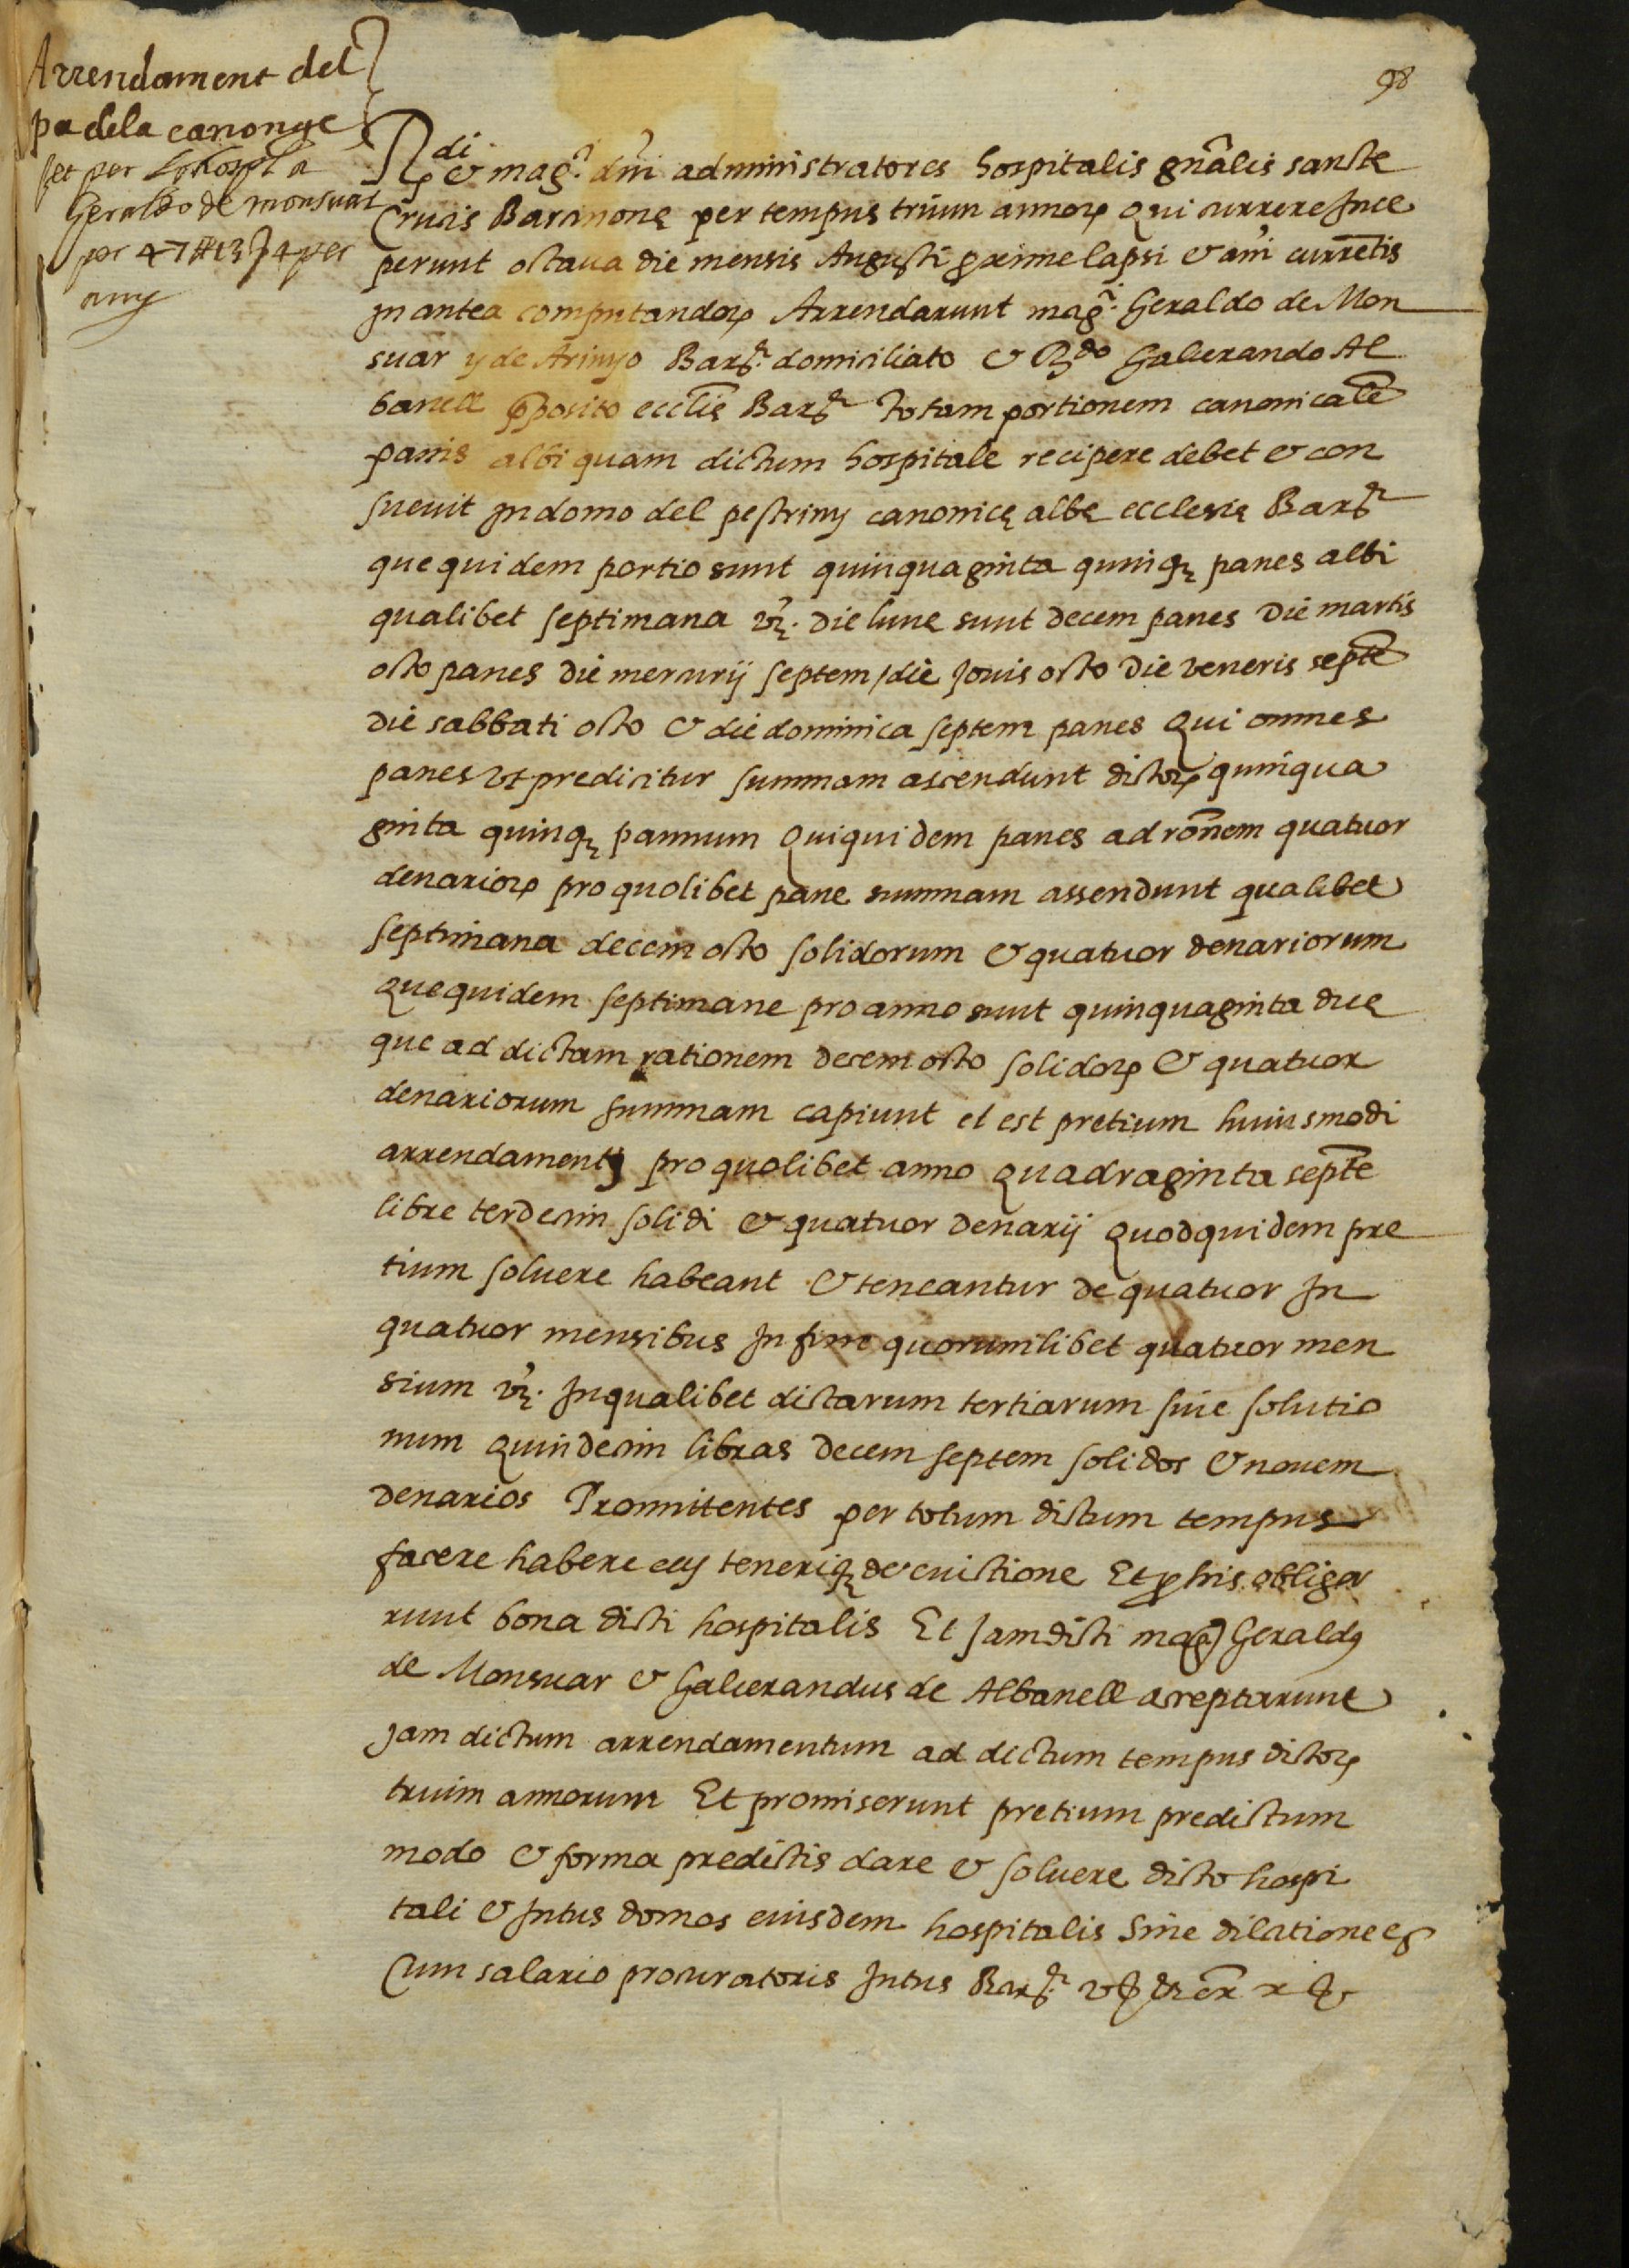 98
Arrendament del
pa dela canonge
fet per Lo hospl a
Geraldo de monsuar
per 47 ll 13 s 4 per
any
Rdi & magci dñi administratores hospitalis gñalis sancte
Crucis Barcinonę per tempus trium annoꝝ qui currere Ince
perunt octaua die mensis Augusti proxime lapsi & añi currẽtis
In antea computandoꝝ Arrendarunt magco. Geraldo de Mon
suar y de Arinyo Barñe. domiciliato & Rdo Galcerando Al
banell pposito ecclię Barñe totam portionem canonicalẽ
panis albi quam dictum hospitale recipere debet & con
sueuit In domo del pestriny canonicę albę ecclesię Barñe
que quidem portio sunt quinquaginta quinqꝫ panes albi
qualibet septimana vꝫ. die lunę sunt decem panes Die martis
octo panes Die mercurij septem / die Jouis octo Die veneris septẽ
Die sabbati octo & die dominica septem panes Qui omnes
panes vt predicitur summam ascendunt dictoꝝ quinqua
ginta quinqꝫ pannum Qui quidem panes ad rõnem quatuor
denarioꝝ pro quolibet pane summam assendunt qualibet
septimana decem octo solidorum & quatuor denariorum
Que quidem septimane pro anno sunt quinquaginta duę
que ad dictam rationem decem octo solidoꝝ & quatuor
denariorum summam capiunt et est pretium huiusmodi
arrendamentj pro quolibet anno Quadraginta septẽ
libre terdecim solidi & quatuor denarij Quodquidem pre
tium soluere habeant & teneantur de quatuor In
quatuor mensibus In fine quorumlibet quatuor men
sium vꝫ. In qualibet dictarum tertiarum siue solutio
num Quindecim libras decem septem solidos & nouem
denarios Promitentes per totum dictum tempus
facere habere eis teneriqꝫ de euictione Et p his obliga
runt bona dicti hospitalis Et Jamdicti magci Geraldꝰ
de Monsuar & Galcerandus de Albanell acceptarunt
Jam dictum arrendamentum ad dictum tempus dictoꝝ
trium annorum Et promiserunt pretium predictum
modo & forma predictis dare & soluere dicto hospi
tali & Intus domos eiusdem hospitalis Sine dilatione
Cum salario procuratoris Intus Barñe